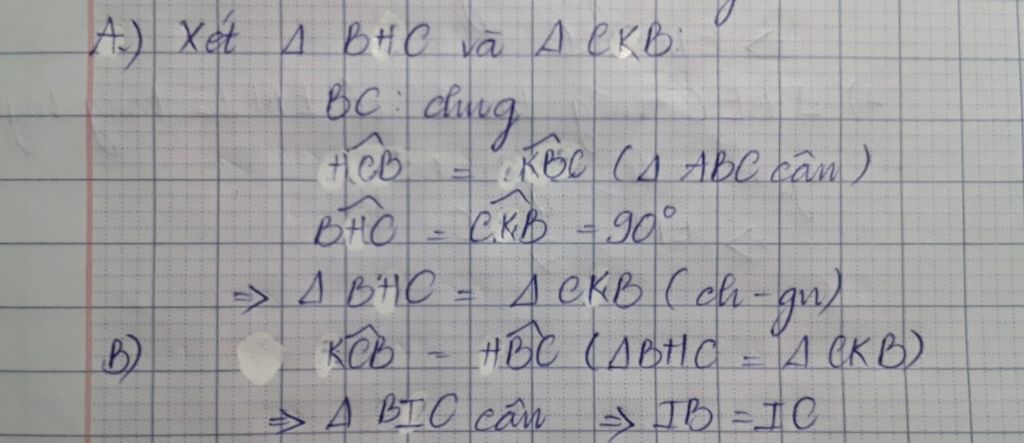 A.) Xét Δ BHC và Δ CKB:
BC: chung
$\widehat{HCB}$ = $\widehat{KBC}$ (Δ ABC cân)
$\widehat{BHC}$ = $\widehat{CKB}$ = 90°
⇒ Δ BHC = Δ CKB (ch-gn)
B) $\widehat{KCB}$ = $\widehat{HBC}$ (ΔBHC = Δ CKB)
⇒ Δ BIC cân ⇒ IB = IC